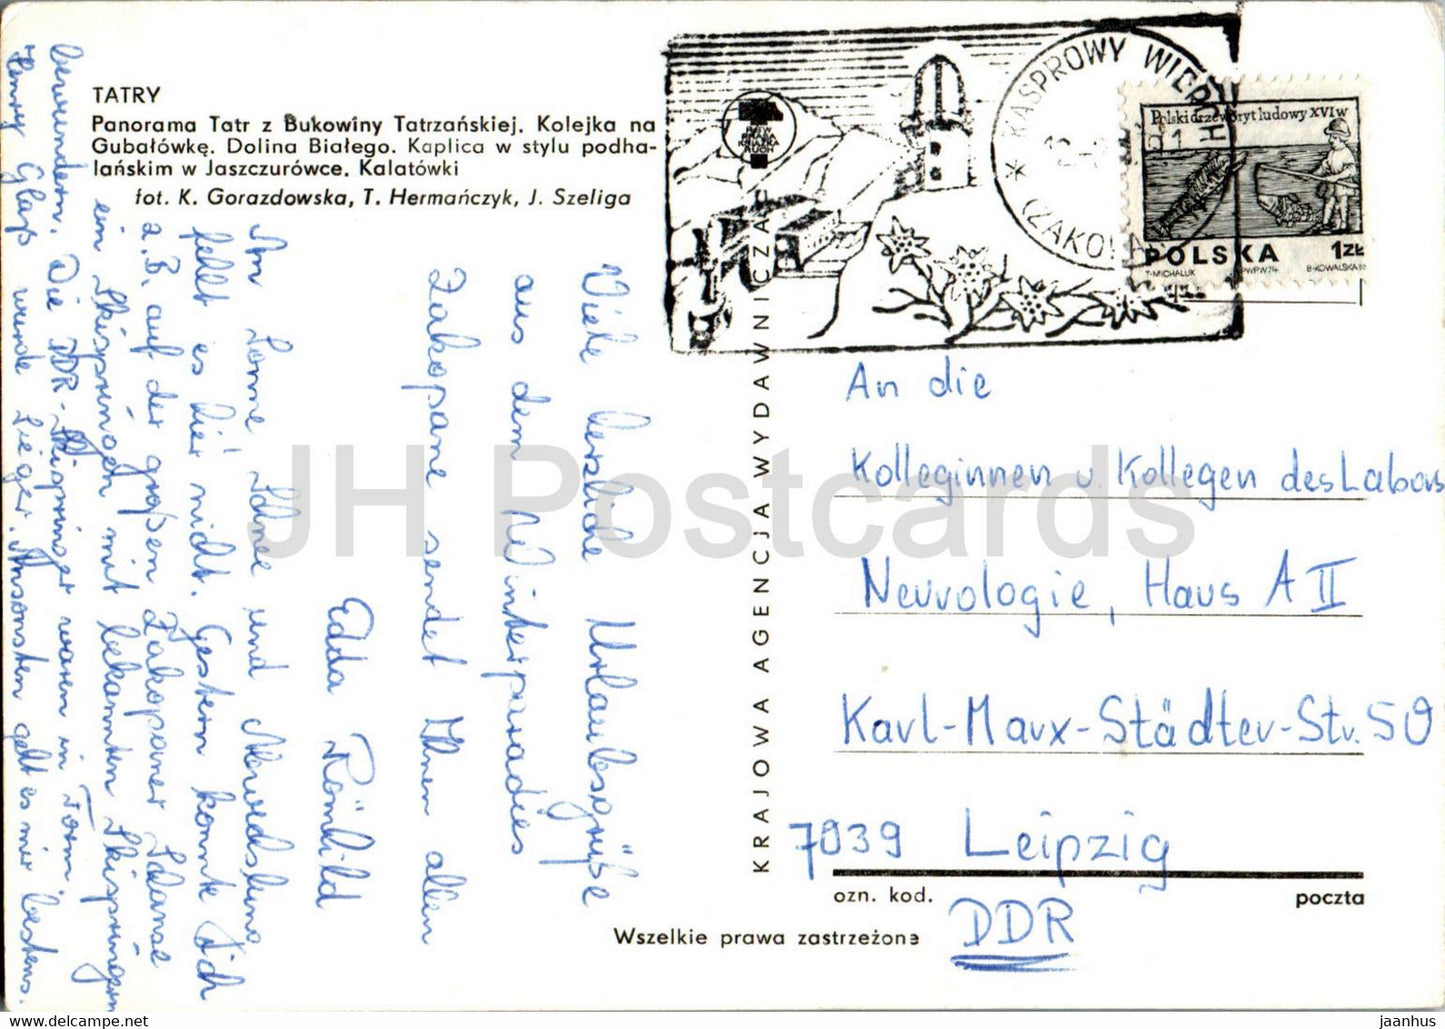 TATRY
Panorama Tatr z Bukowiny Tatrzańskiej. Kolejka na
Gubałówkę. Dolina Białego. Kaplica w stylu podha-
lańskim w Jaszczurówce. Kalatówki
fot. K. Gorazdowska, T. Hermańczyk, J. Szeliga
Viele herzliche Urlaubsgrüße
aus dem Winterparadies
Zakopane sendet Ihnen allen
Edda Römhild
An Sonne Sonne und Abwechslung
fehlt es hier nicht. Gestern konnte ich
z.B. auf der großen Zakopaner Schanze
ein Skispringen mit bekannten Skispringern
bewundern. Die DDR-Skispringer waren in Form.
Henry Glaß wurde Sieger. Ansonsten geht es mir bestens.
KRAJOWA AGENCJA WYDAWNICZA
KASPROWY WIERCH
(ZAKOPANE)
Polski drzeworyt ludowy XVI w
POLSKA 1 ZŁ
T-MICHALUK PWPW 74 B-KOWALSKA
An die
Kolleginnen u. Kollegen des Labors
Neurologie, Haus A II
Karl-Marx-Städter-Str. 50
7039 Leipzig
DDR
ozn. kod. poczta
Wszelkie prawa zastrzeżone
JH Postcards
www.delcampe.net
jaanhus